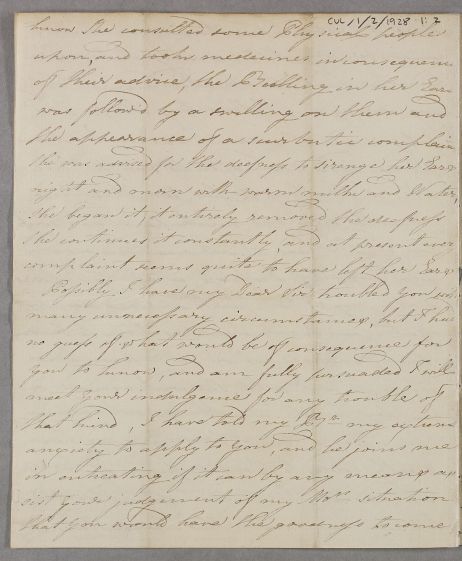 CUL/1/2/1928 1:2
know She consulted some Physical people
upon, and took medecines in consequence
of their advice, the Buzzing in her Ears
was follow'd by a swelling on them and
the appearance of a scurbutic complain
She was advised for the deafness to siringe her Ears
night and morn with warm milk and Water,
She began it, it entirely removed the deafness
She continues it constantly, and at present every
complaint seems quite to have left her Ears
Possibly I have my Dear Sir troubled you with
many unnecessary circumstances, but I had
no guess of what would be of consequence for
you to know, and am fully persuaded I will
meet your indulgence for any trouble of
that kind, I have told my my extreme
anxiety to apply to you, and he joins me
in entreating if it can by any means as
sist your judgment of my Mors situation
that you would have the goodness to come